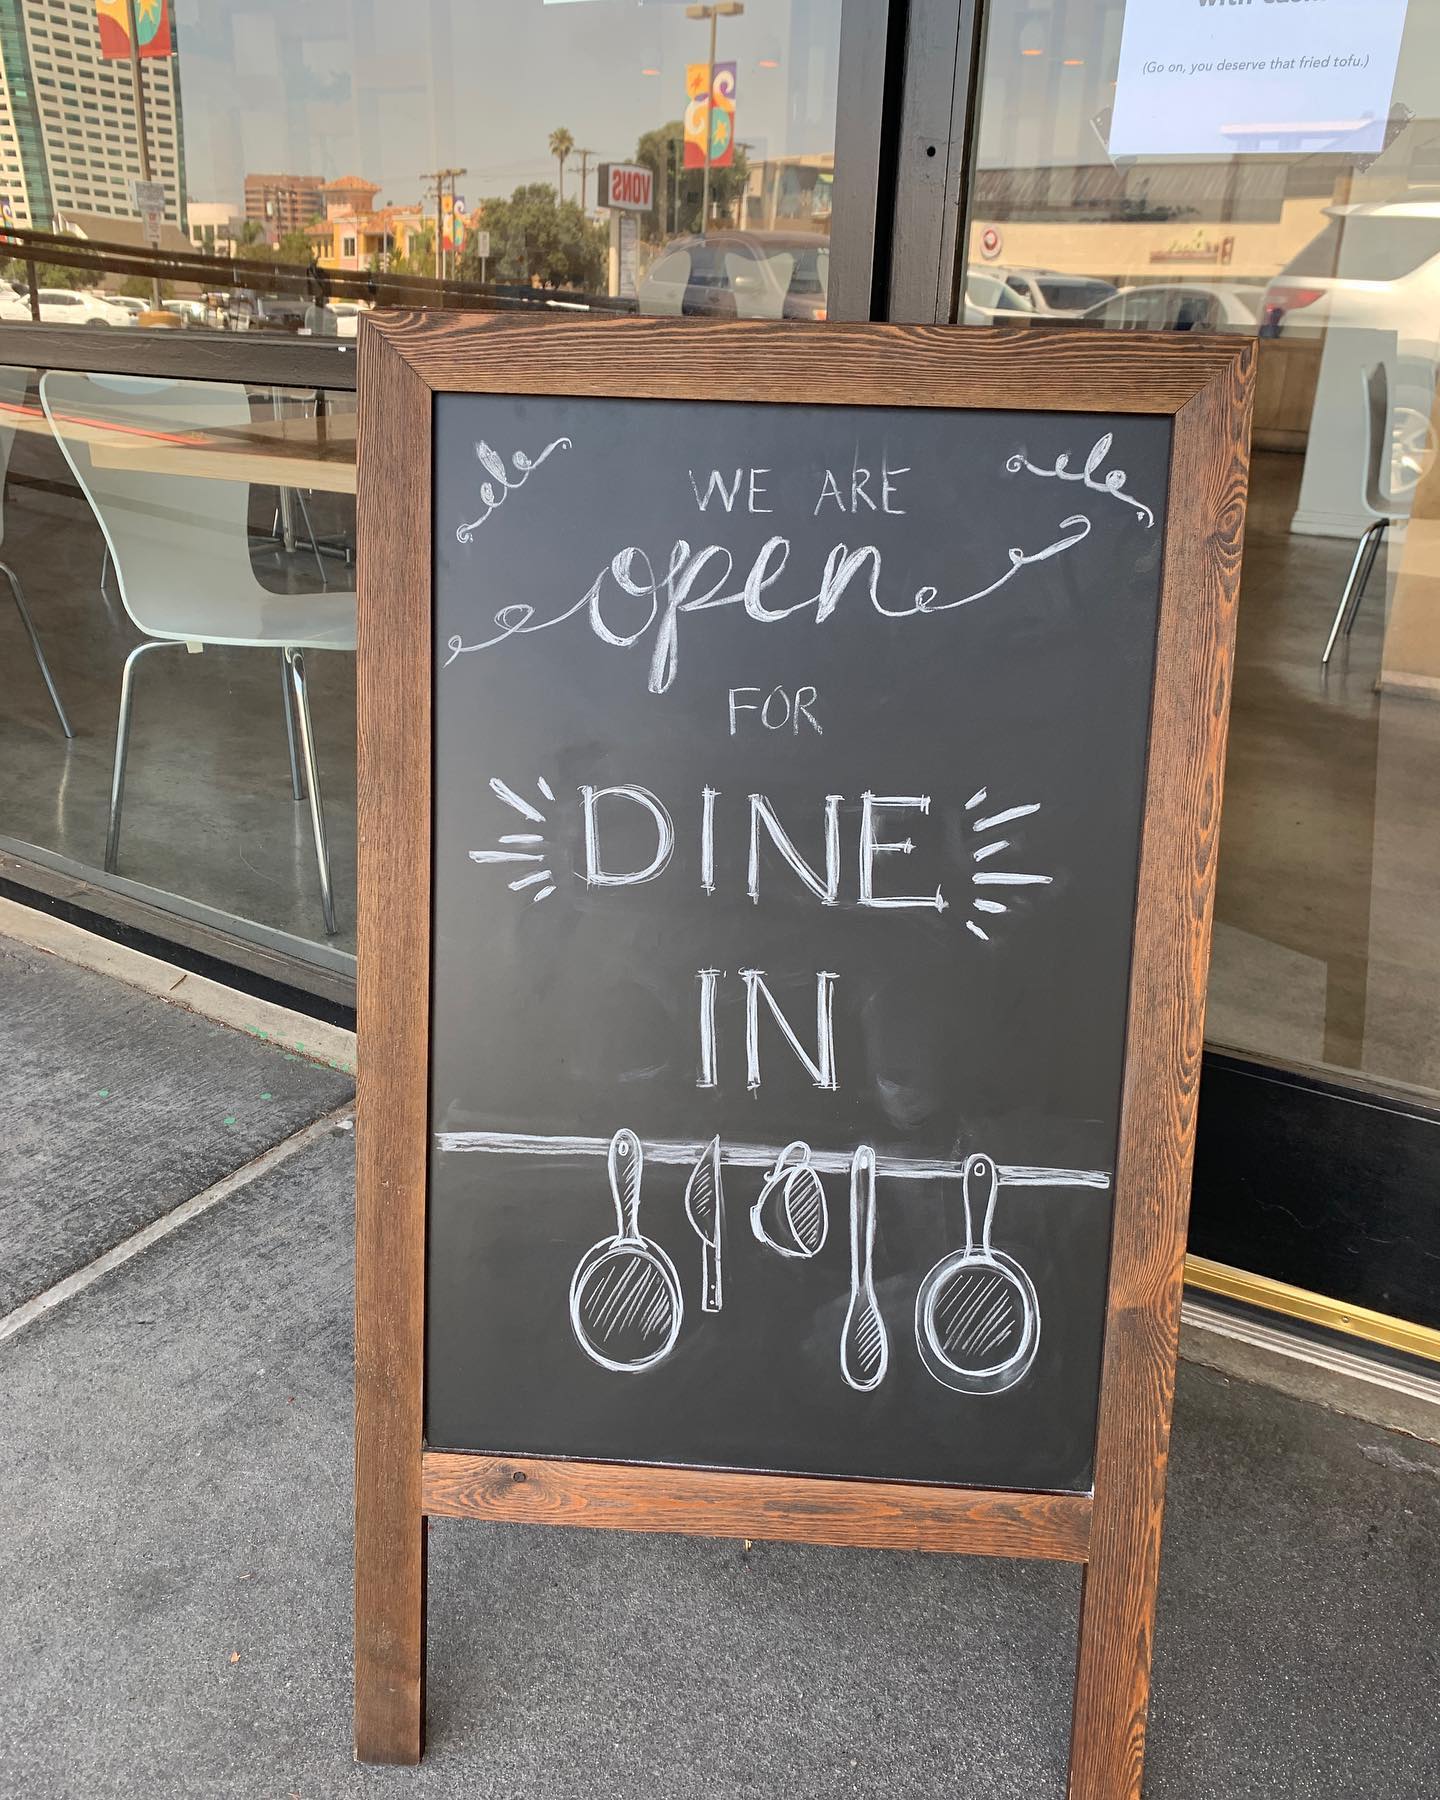 (Go on, you deserve that fried tofu.)
VONS
WE ARE
open
FOR
DINE
IN